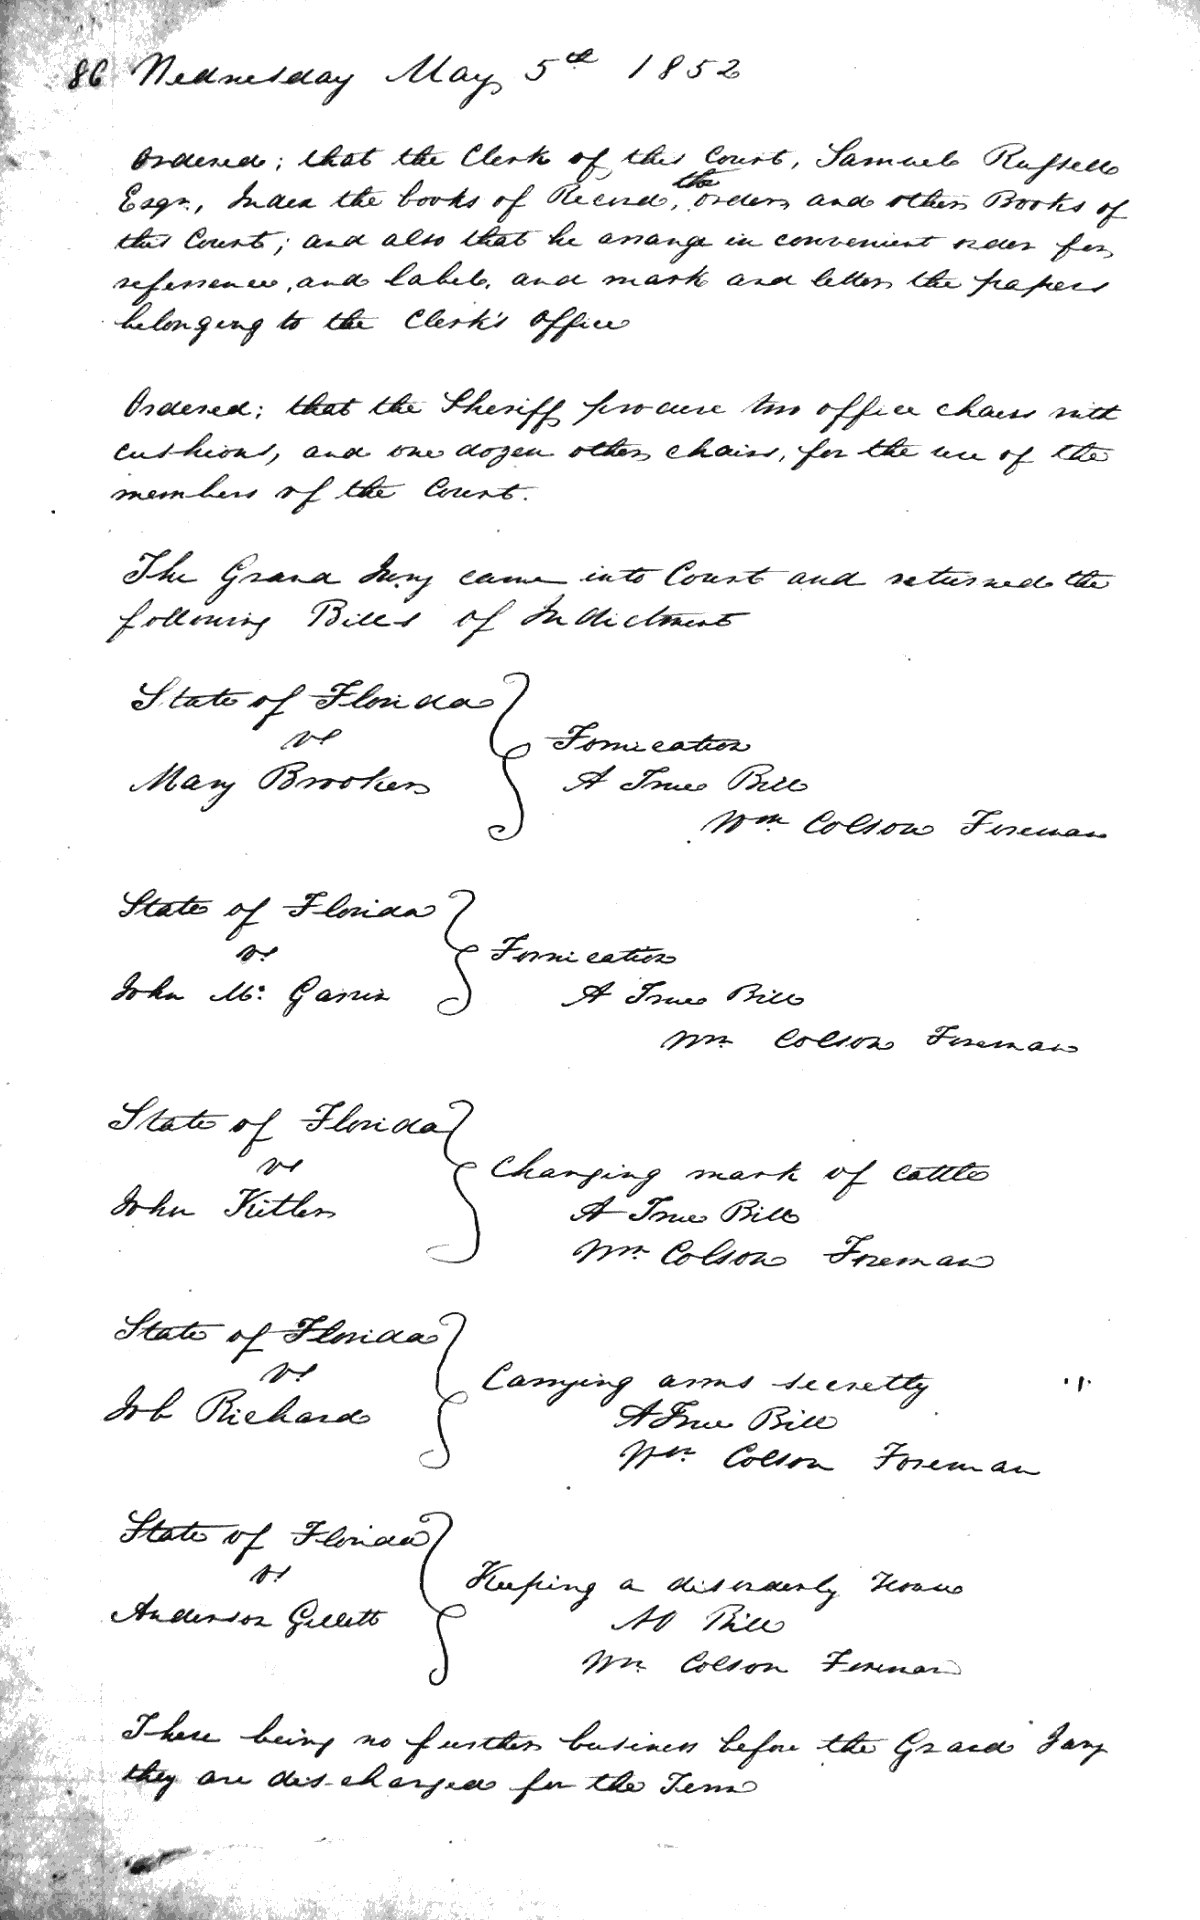 86 Wednesday May 5th 1852
Ordered; that the Clerk of this Court, Samuel Russell
Esqr., Index the books of Record, the orders and other Books of
this Court; and also that he arrange in convenient order for
referrence, and label, and mark and letter the papers
belonging to the Clerk's office
Ordered; that the Sheriff procure two office chairs with
cushions, and one dozen other chairs, for the use of the
members of the Court.
The Grand Jury came into Court and returned the
following Bills of Indictment
State of Florida
vs
Mary Brooker
Fornication
A True Bill
Wm Colson Foreman
State of Florida
vs
John Mc
Fornication
A True Bill
Wm Colson Foreman
State of Florida
vs
John Kitler
Changing mark of cattle
A True Bill
Wm Colson Foreman
State of Florida
vs
Job Richard
Carrying arms secretly
A True Bill
Wm. Colson Foreman
State of Florida
vs
Anderson Gillett
Keeping a disorderly House
No Bill
Wm. Colson Foreman
There being no further business before the Grand Jury
they are discharged for the Term